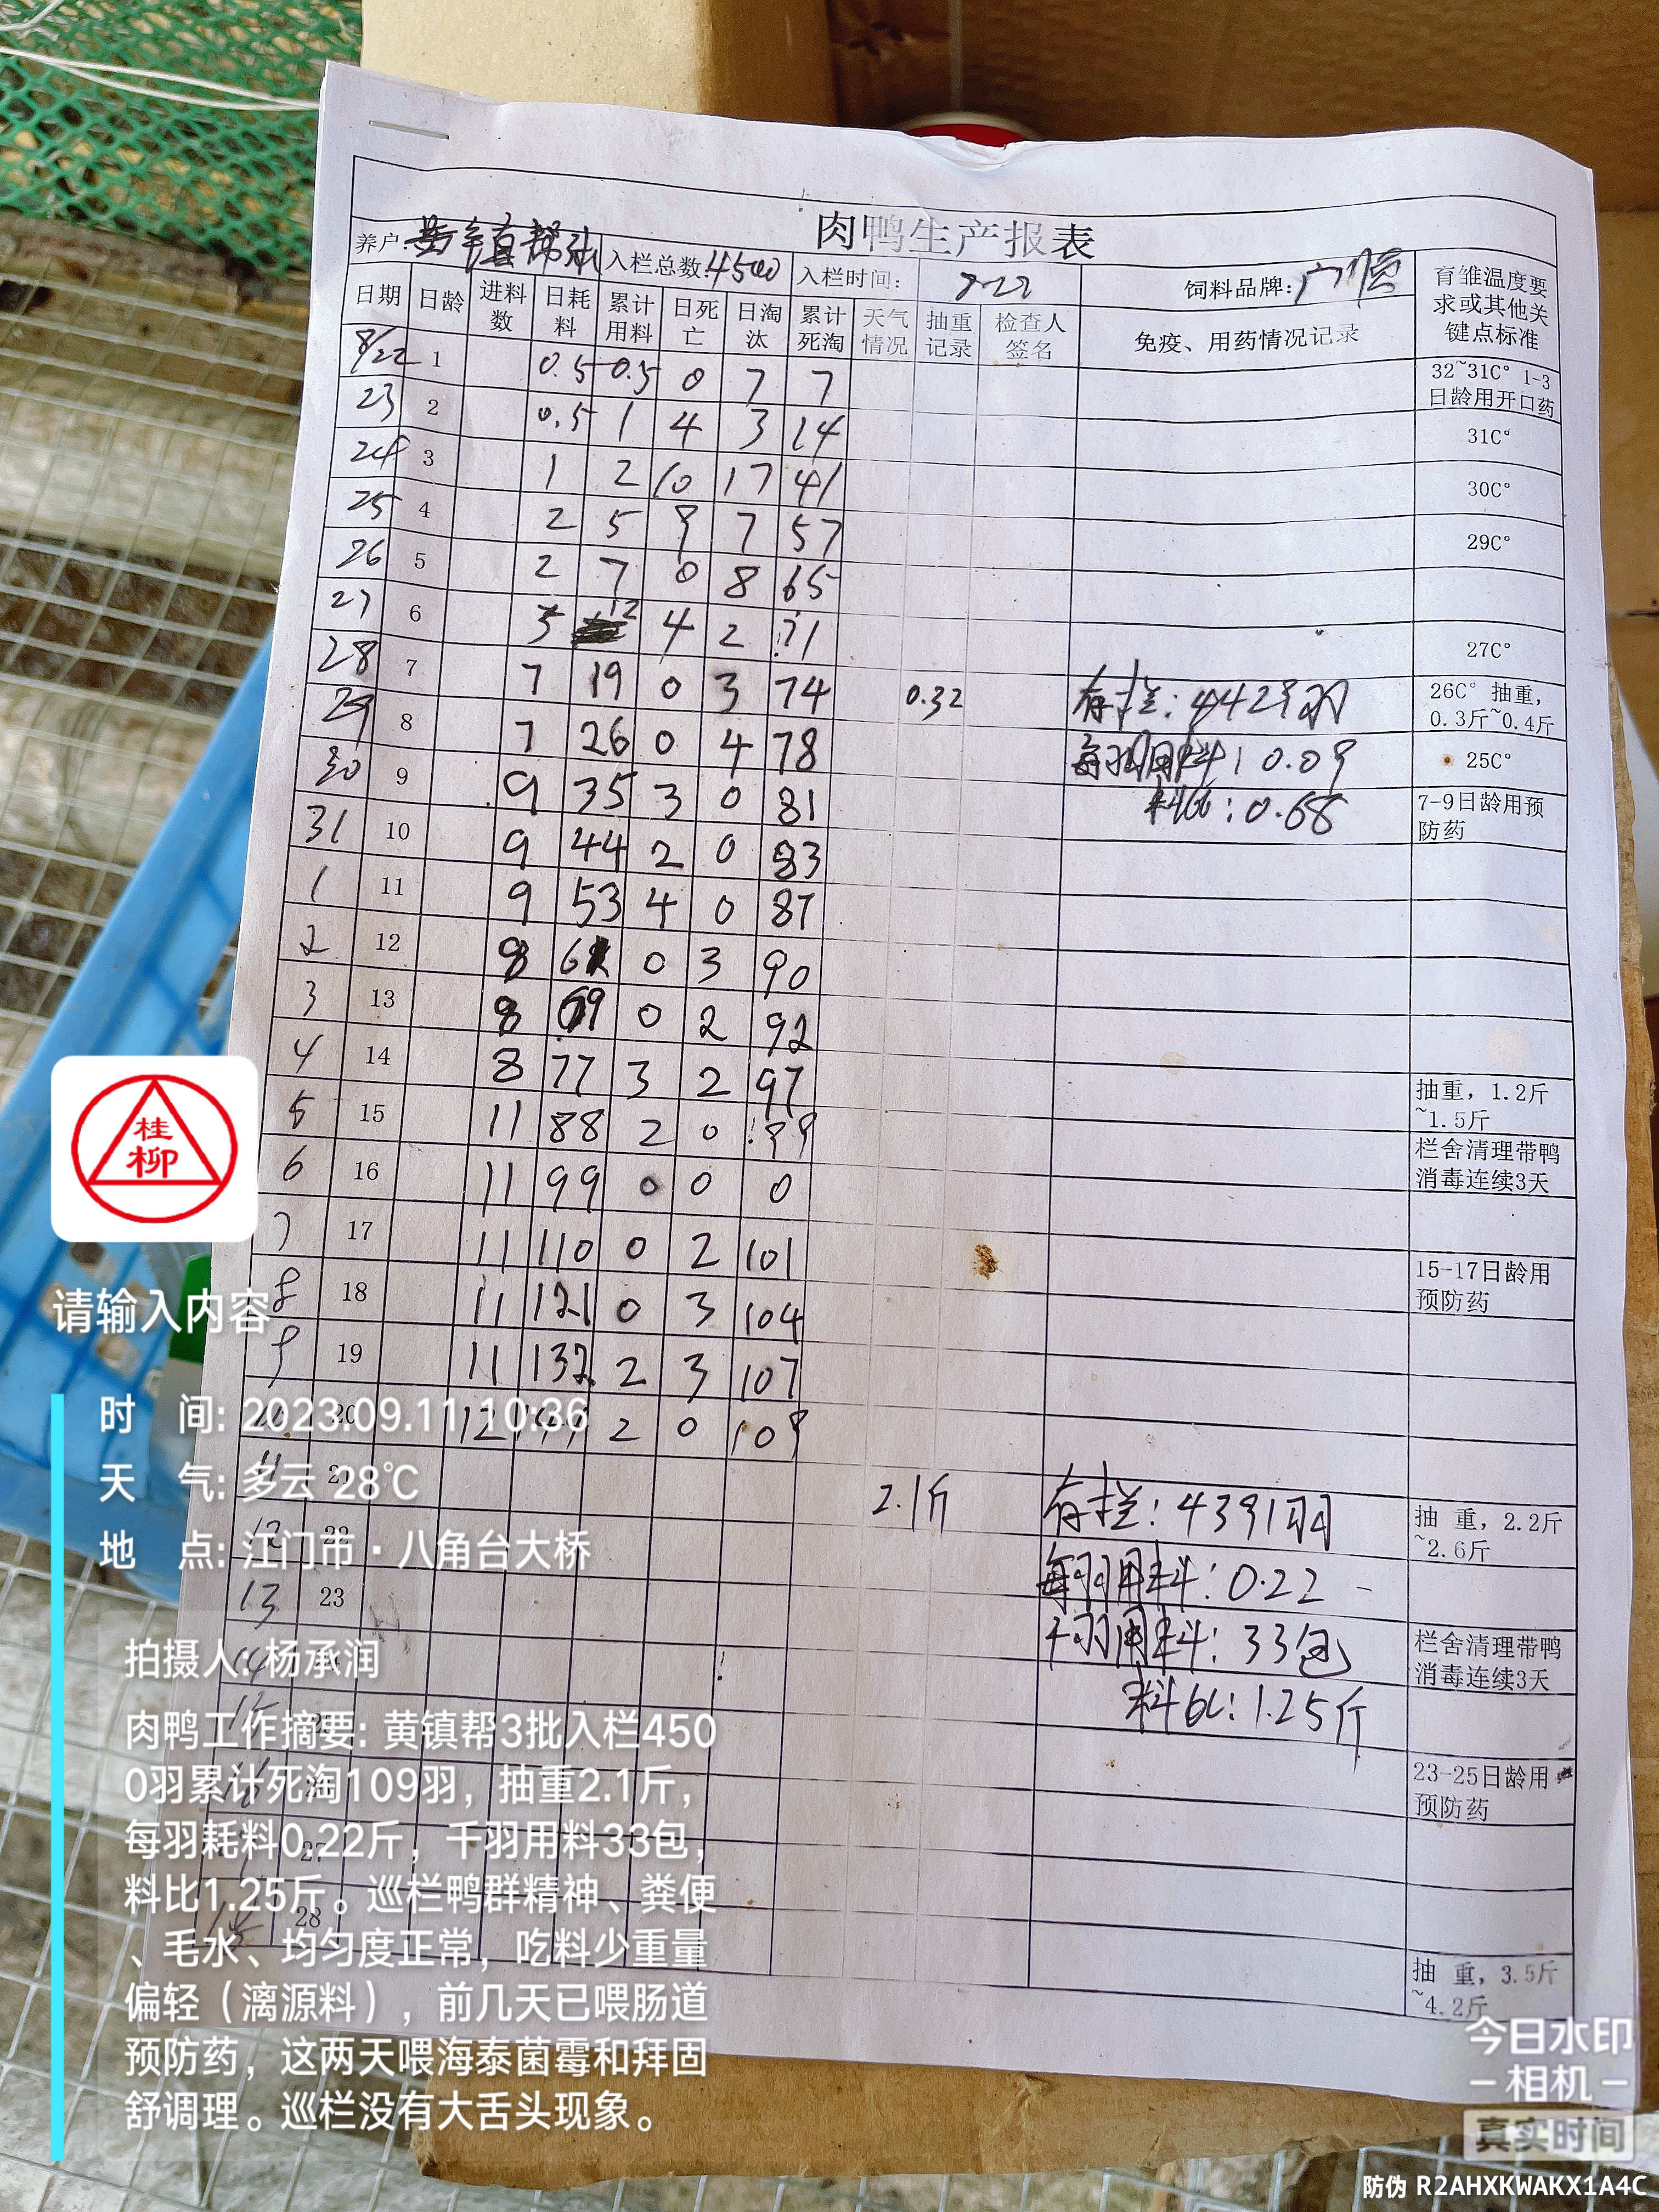 肉鸭生产报表
养户: 黄镇帮 入栏总数:4500 入栏时间: 8-22 饲料品牌: 育雏温度要求或其他关键点标准
日期 日龄 进料数 日耗料 累计用料 日死亡 日淘汰 累计死淘 天气情况 抽重记录 检查人签名 免疫、用药情况记录
8/22 1 0.5 0.5 0 7 7 32~31C° 1-3日龄用开口药
23 2 0.5 1 4 3 14 31C°
24 3 1 2 10 17 41 30C°
25 4 2 5 9 7 57 29C°
26 5 2 7 0 8 65
27 6 5 12 4 2 71 27C°
28 7 7 19 0 3 74 0.32 存栏:4429羽 26C° 抽重,0.3斤~0.4斤
29 8 7 26 0 4 78 每羽用料:0.09 25C°
30 9 9 35 3 0 81 料比:0.68 7-9日龄用预防药
31 10 9 44 2 0 83
1 11 9 53 4 0 87
2 12 8 61 0 3 90
3 13 8 69 0 2 92
4 14 8 77 3 2 97 抽重,1.2斤~1.5斤
5 15 11 88 2 0 99 栏舍清理带鸭消毒连续3天
6 16 11 99 0 0 0
7 17 11 110 0 2 101 15-17日龄用预防药
8 18 11 121 0 3 104
9 19 11 132 2 3 107
20 12 2 0 109
11 21 2.1斤 存栏:4391羽 抽 重,2.2斤~2.6斤
12 22 每羽用料:0.22
13 23 千羽用料:33包 栏舍清理带鸭消毒连续3天
14 料比:1.25斤
15 23-25日龄用预防药
16
27
28 抽 重,3.5斤~4.2斤
桂
柳
请输入内容
时 间: 2023.09.11 10:36
天 气: 多云 28℃
地 点: 江门市·八角台大桥
拍摄人: 杨承润
肉鸭工作摘要: 黄镇帮3批入栏450
0羽累计死淘109羽，抽重2.1斤，
每羽耗料0.22斤，千羽用料33包，
料比1.25斤。巡栏鸭群精神、粪便
、毛水、均匀度正常，吃料少重量
偏轻（漓源料），前几天已喂肠道
预防药，这两天喂海泰菌霉和拜固
舒调理。巡栏没有大舌头现象。
今日水印
-相机-
真实时间
防伪 R2AHXKWAKX1A4C